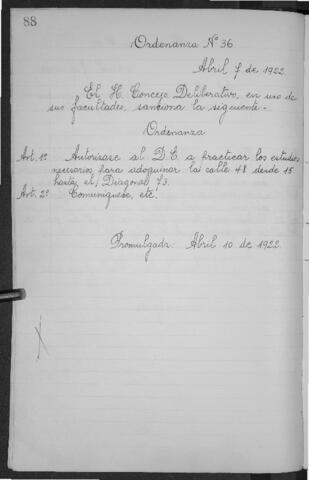 88
Ordenanza Nº 36.
Abril 7 de 1922.
El H. Concejo Deliberativo, en uso de
sus facultades, sanciona la siguiente.-
Ordenanza
Art. 1º Autorízase al D.E. a practicar los estudios
necesarios para adoquinar la calle 48 desde 15
hasta el Diagonal 73.
Art. 2º Comuníquese, etc.
Promulgada: Abril 10 de 1922.